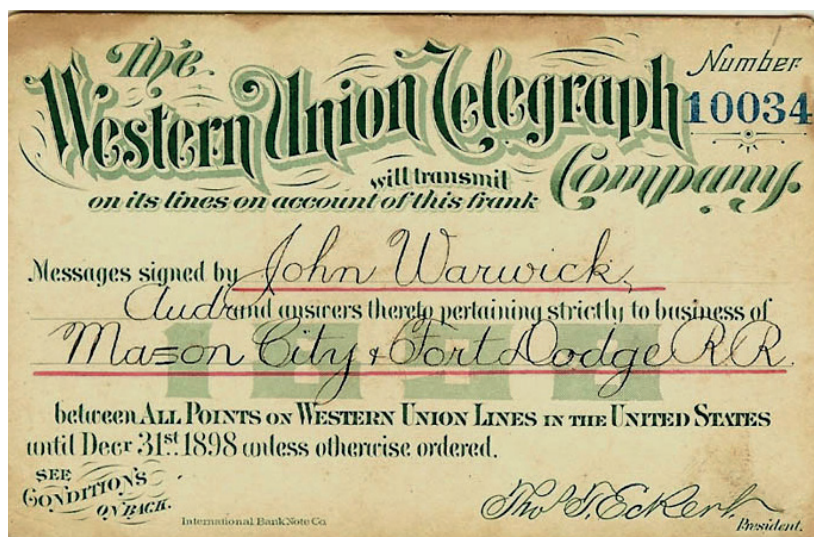 The
Number
Western Union Telegraph
10034
will transmit
Company.
on its lines on account of this frank
Messages signed by John Warwick,
Audr and answers thereto pertaining strictly to business of
1898
Mason City & Fort Dodge R.R.
between ALL POINTS ON WESTERN UNION LINES IN THE UNITED STATES
until Decr 31st 1898 unless otherwise ordered.
SEE
CONDITIONS
ON BACK.
International Bank Note Co.
Tho's T. Eckert
President.